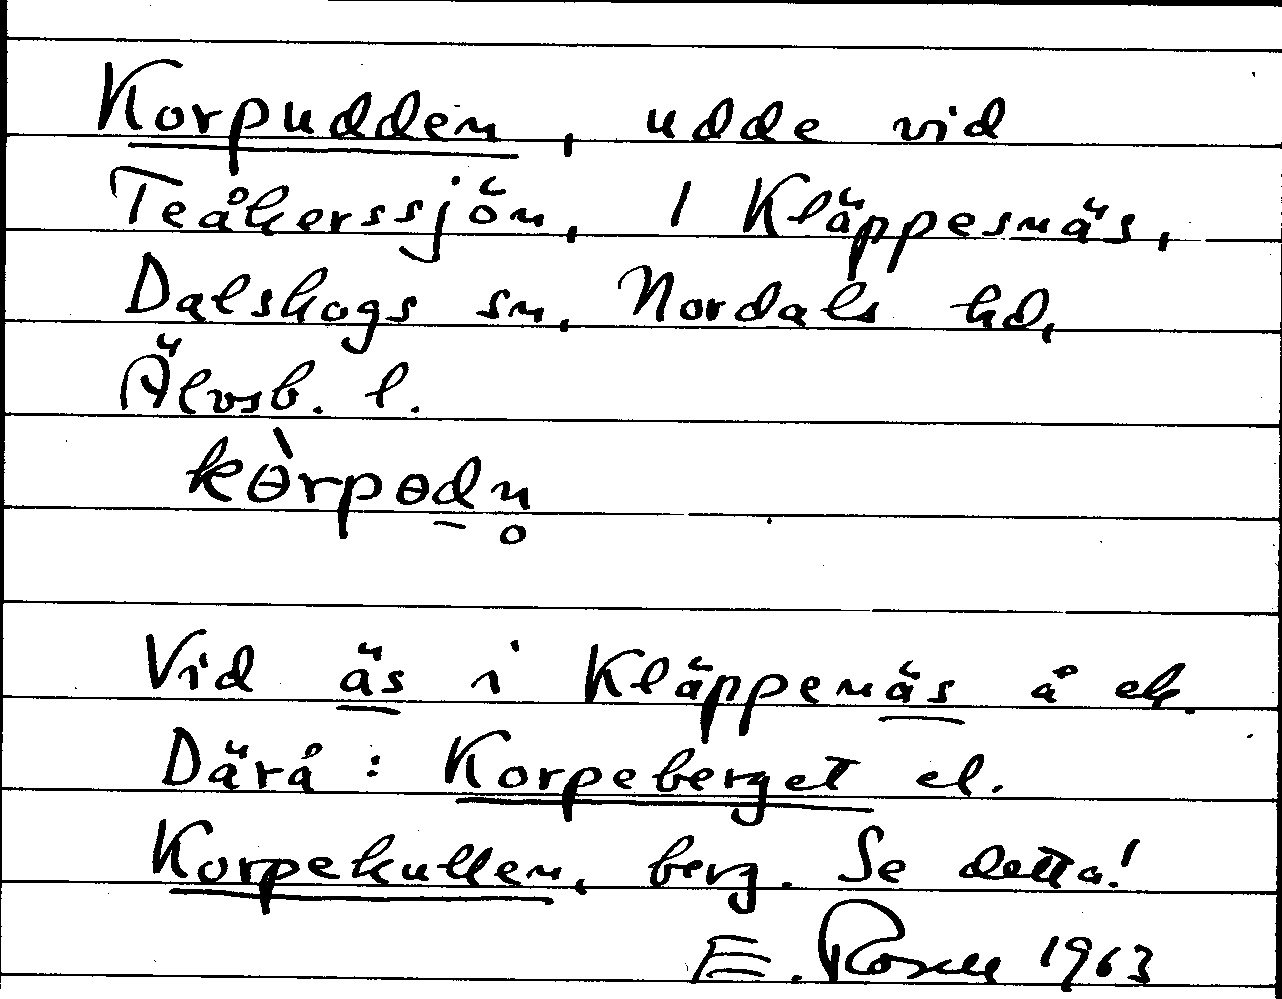 Korpudden, udde vid
Teåkerssjön, 1 Kläppesnäs,
Dalskogs sn, Nordals hd,
Älvsb. l.
kɵ̀rpɵdn̥
Vid äs i Kläppenäs å ek.
Därå: Korpeberget el.
Korpekullen, berg. Se detta!
E. Rosell 1963